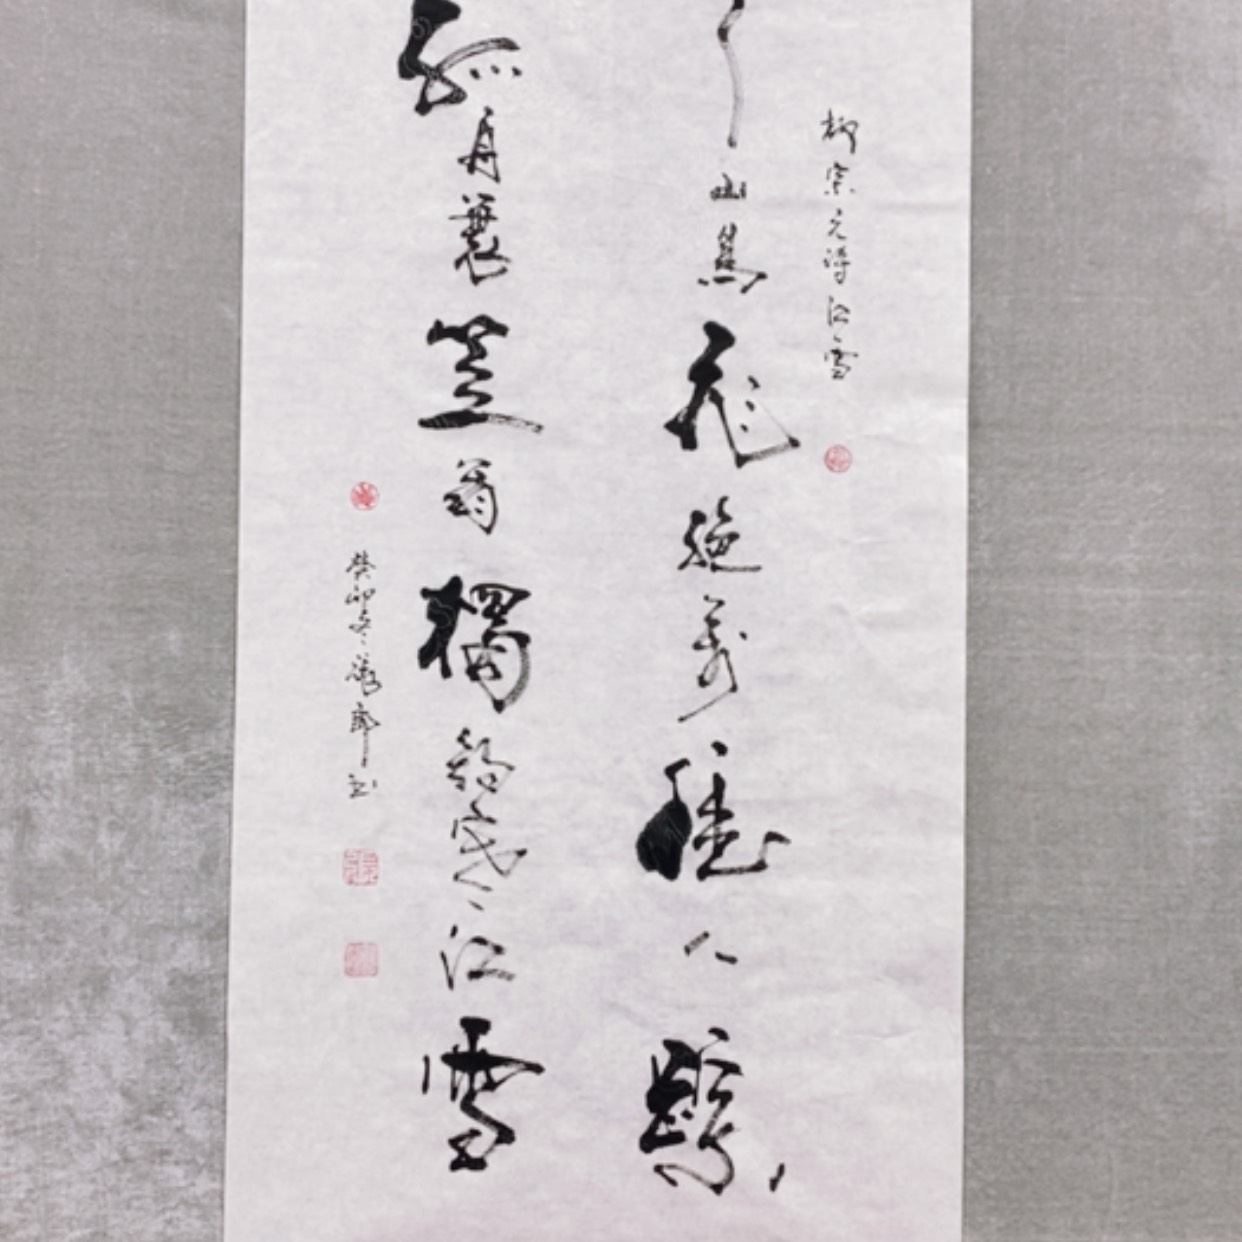 柳宗元诗江雪
山鳥飛絕萬徑人蹤
孤舟蓑笠翁獨釣寒江雪
癸卯冬